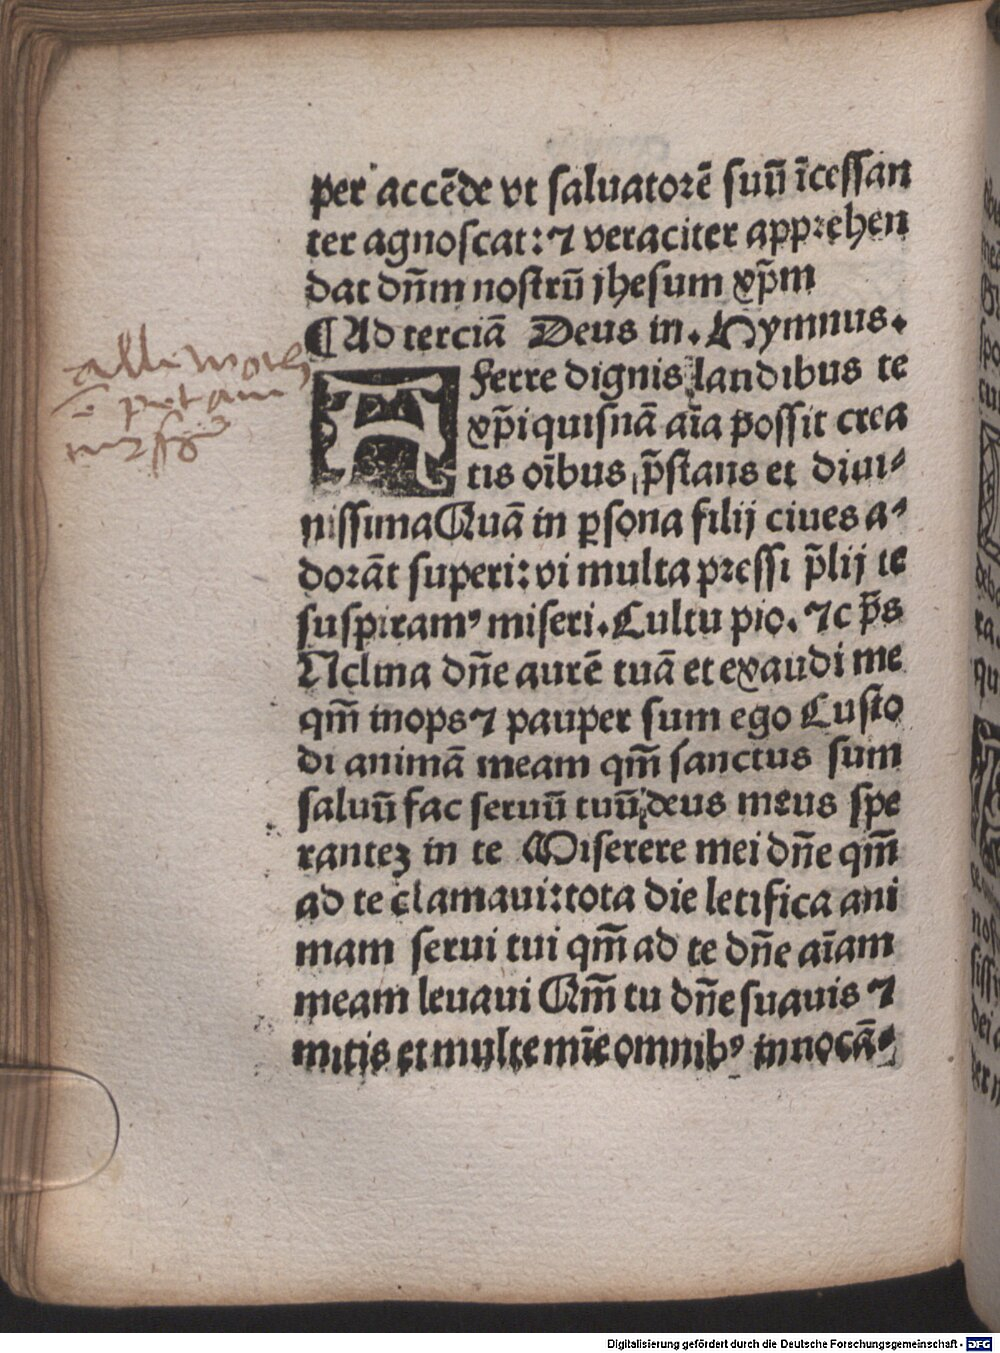 per accēde vt saluatorē suū īcessan
ter agnoscat: ⁊ veraciter apprehen
dat dn̄m nostrū jhesum xp̄m
¶Ad terciā Deus in. Hymnus.
AFferre dignis landibus te
xp̄i quisnā aīa possit crea
tis oībus p̄stans et diui⸗
nissima Quā in ꝑsona filij ciues a⸗
dorāt superi: vi multa pressi p̄lij te
suspiramꝰ miseri. Cultu pio. ⁊c p̄s
INclina dn̄e aurē tuā et exaudi me
qm̄ inops ⁊ pauper sum ego Custo
di animā meam qm̄ sanctus sum
saluū fac seruū tuū deus meus spe
rantez in te Miserere mei dn̄e qm̄
ad te clamaui: tota die letifica ani
mam serui tui qm̄ ad te dn̄e aīam
meam leuaui Qm̄ tu dn̄e suauis ⁊
mitis et multe mīe omnibꝰ innocā⸗
Digitalisierung gefördert durch die Deutsche Forschungsgemeinschaft - DFG